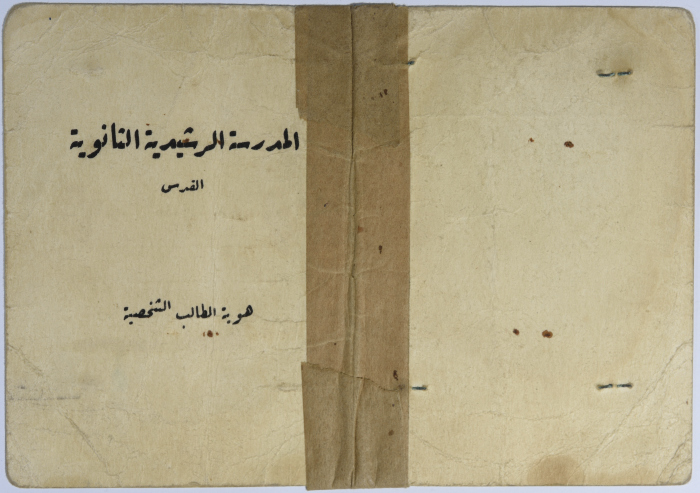 المدرسة الرشيدية الثانوية
القدس
هوية الطالب الشخصية